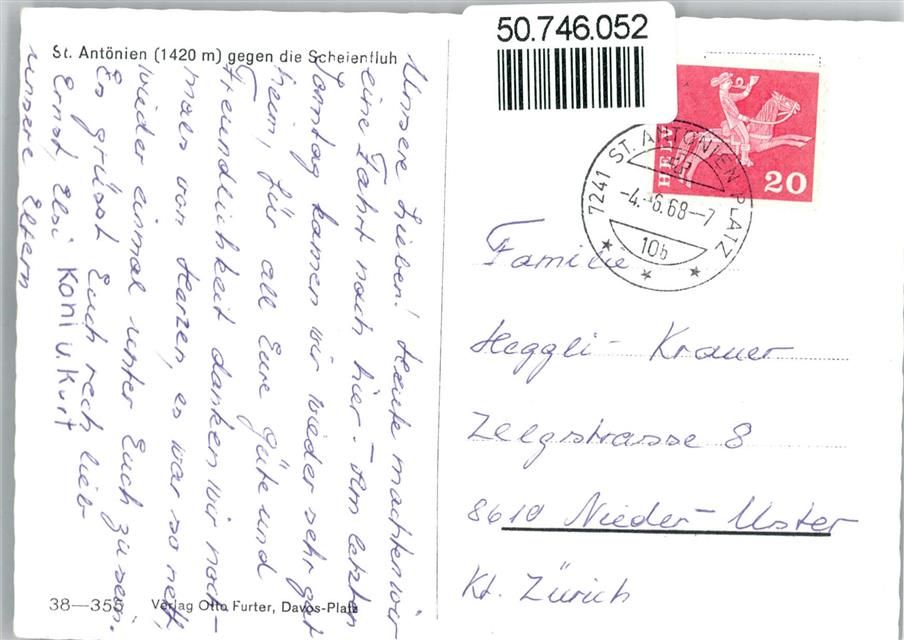 St. Antönien (1420 m) gegen die Scheienfluh
50.746.052
HELVETIA
20
7241 ST. ANTÖNIEN PLATZ
-4.-6.68—7
10b
Unsere Lieben! Heute machten wir
eine Fahrt nach hier. – Am letzten
Sonntag kamen wir wieder sehr gut
heim, für all Eure Güte und
Freundlichkeit danken wir noch-
mals von Herzen, es war so nett,
wieder einmal unter Euch zu sein.
Es grüsst Euch rech lieb
Ernst, Elsi Koni u. Kurt
unsere Eltern
Familie
Heggli - Krauer
Zelgstrasse 8
8610 Nieder-Uster
Kt. Zürich
38—355 Verlag Otto Furter, Davos-Platz